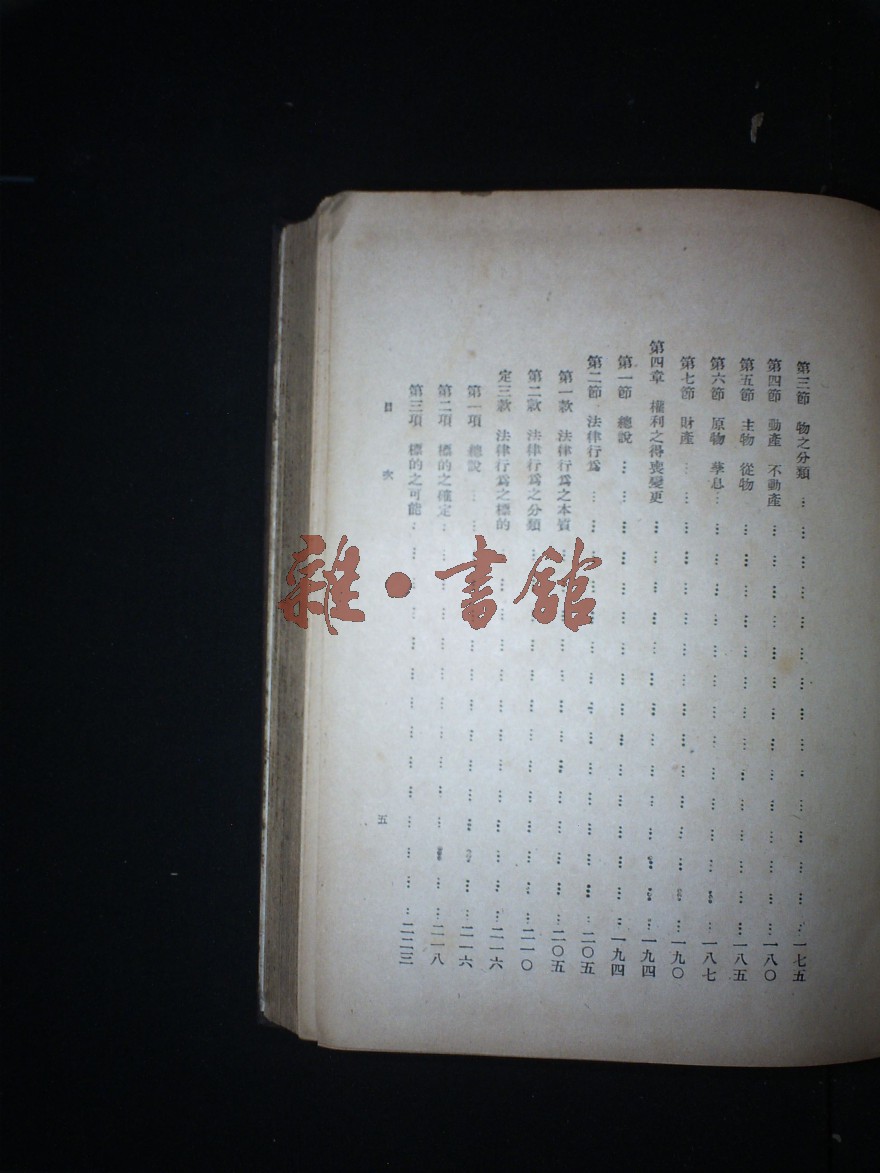 第三節　物之分類…………一七五
第四節　動產　不動產…………一八〇
第五節　主物　從物…………一八五
第六節　原物　孳息…………一八七
第七節　財產…………一九〇
第四章　權利之得喪變更…………一九四
第一節　總說…………一九四
第二節　法律行爲…………二〇五
第一款　法律行爲之本質…………二〇五
第二款　法律行爲之分類…………二一〇
定三款　法律行爲之標的…………二一六
第一項　總說…………二一六
第二項　標的之確定…………二一八
第三項　標的之可能…………二二三
目次
五
雜·書館